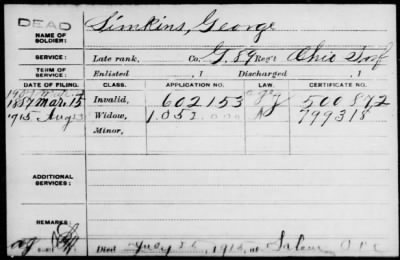 DEAD
NAME OF SOLDIER: Simkins, George
SERVICE: Late rank, Co. G, 89 Reg't Ohio Inf
TERM OF SERVICE: Enlisted , 1 Discharged , 1
DATE OF FILING. CLASS. APPLICATION NO. LAW. CERTIFICATE NO.
1887 Mar. 15 Invalid, 602153 500872
1915 Aug Widow, 1.052. 799318
Minor,
ADDITIONAL SERVICES:
REMARKS:
Died 1915, at Salem,